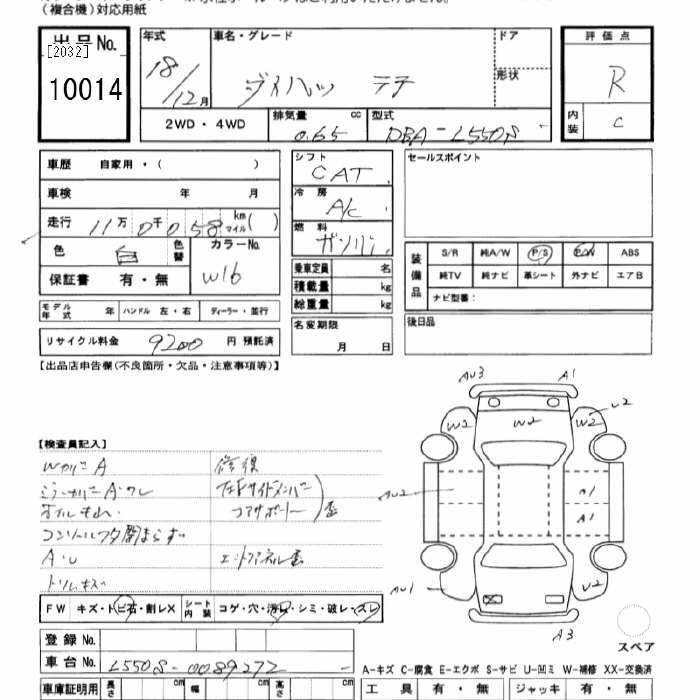 (複合機)対応用紙
出品No.
[2032]
10014
年式
18/12月
車名・グレード
ダイハツ
ドア
形状
評価点
R
内装
C
2WD・4WD
排気量 cc
0.65
型式
DBA-L550S
車歴 自家用・( )
車検 年 月
走行 11万0千058 km マイル( )
色 白 色替
カラーNo. W16
保証書 有・無
シフト
CAT
冷房
A/C
燃料
ガソリン
乗車定員 名
積載量 kg
総重量 kg
セールスポイント
装備品
S/R 純A/W P/S P/W ABS
純TV 純ナビ 革シート 外ナビ エアB
ナビ型番:
モデル年式 年 ハンドル 左・右 ディーラー・並行
名変期限 月 日
後日品
リサイクル料金 9200 円 預託済
【出品店申告欄(不良箇所・欠品・注意事項等)】
AU3 A1
W2 W2 W2 U2
AU2 A1
AU1 U2
A3
スペア
【検査員記入】
WカバーA
修復
コアサポート 歪
コンソールフタ閉まらず
A・U
トリムキズ
FW キズ・トビ石・割レX シート内装 コゲ・穴・汚レ・シミ・破レ・スレ
登録No.
車台No. L550S-0089272
車庫証明用 長さ cm 幅 cm 高さ cm
A-キズ C-腐食 E-エクボ S-サビ U-凹ミ W-補修 XX-交換済
工具 有・無 ジャッキ 有・無